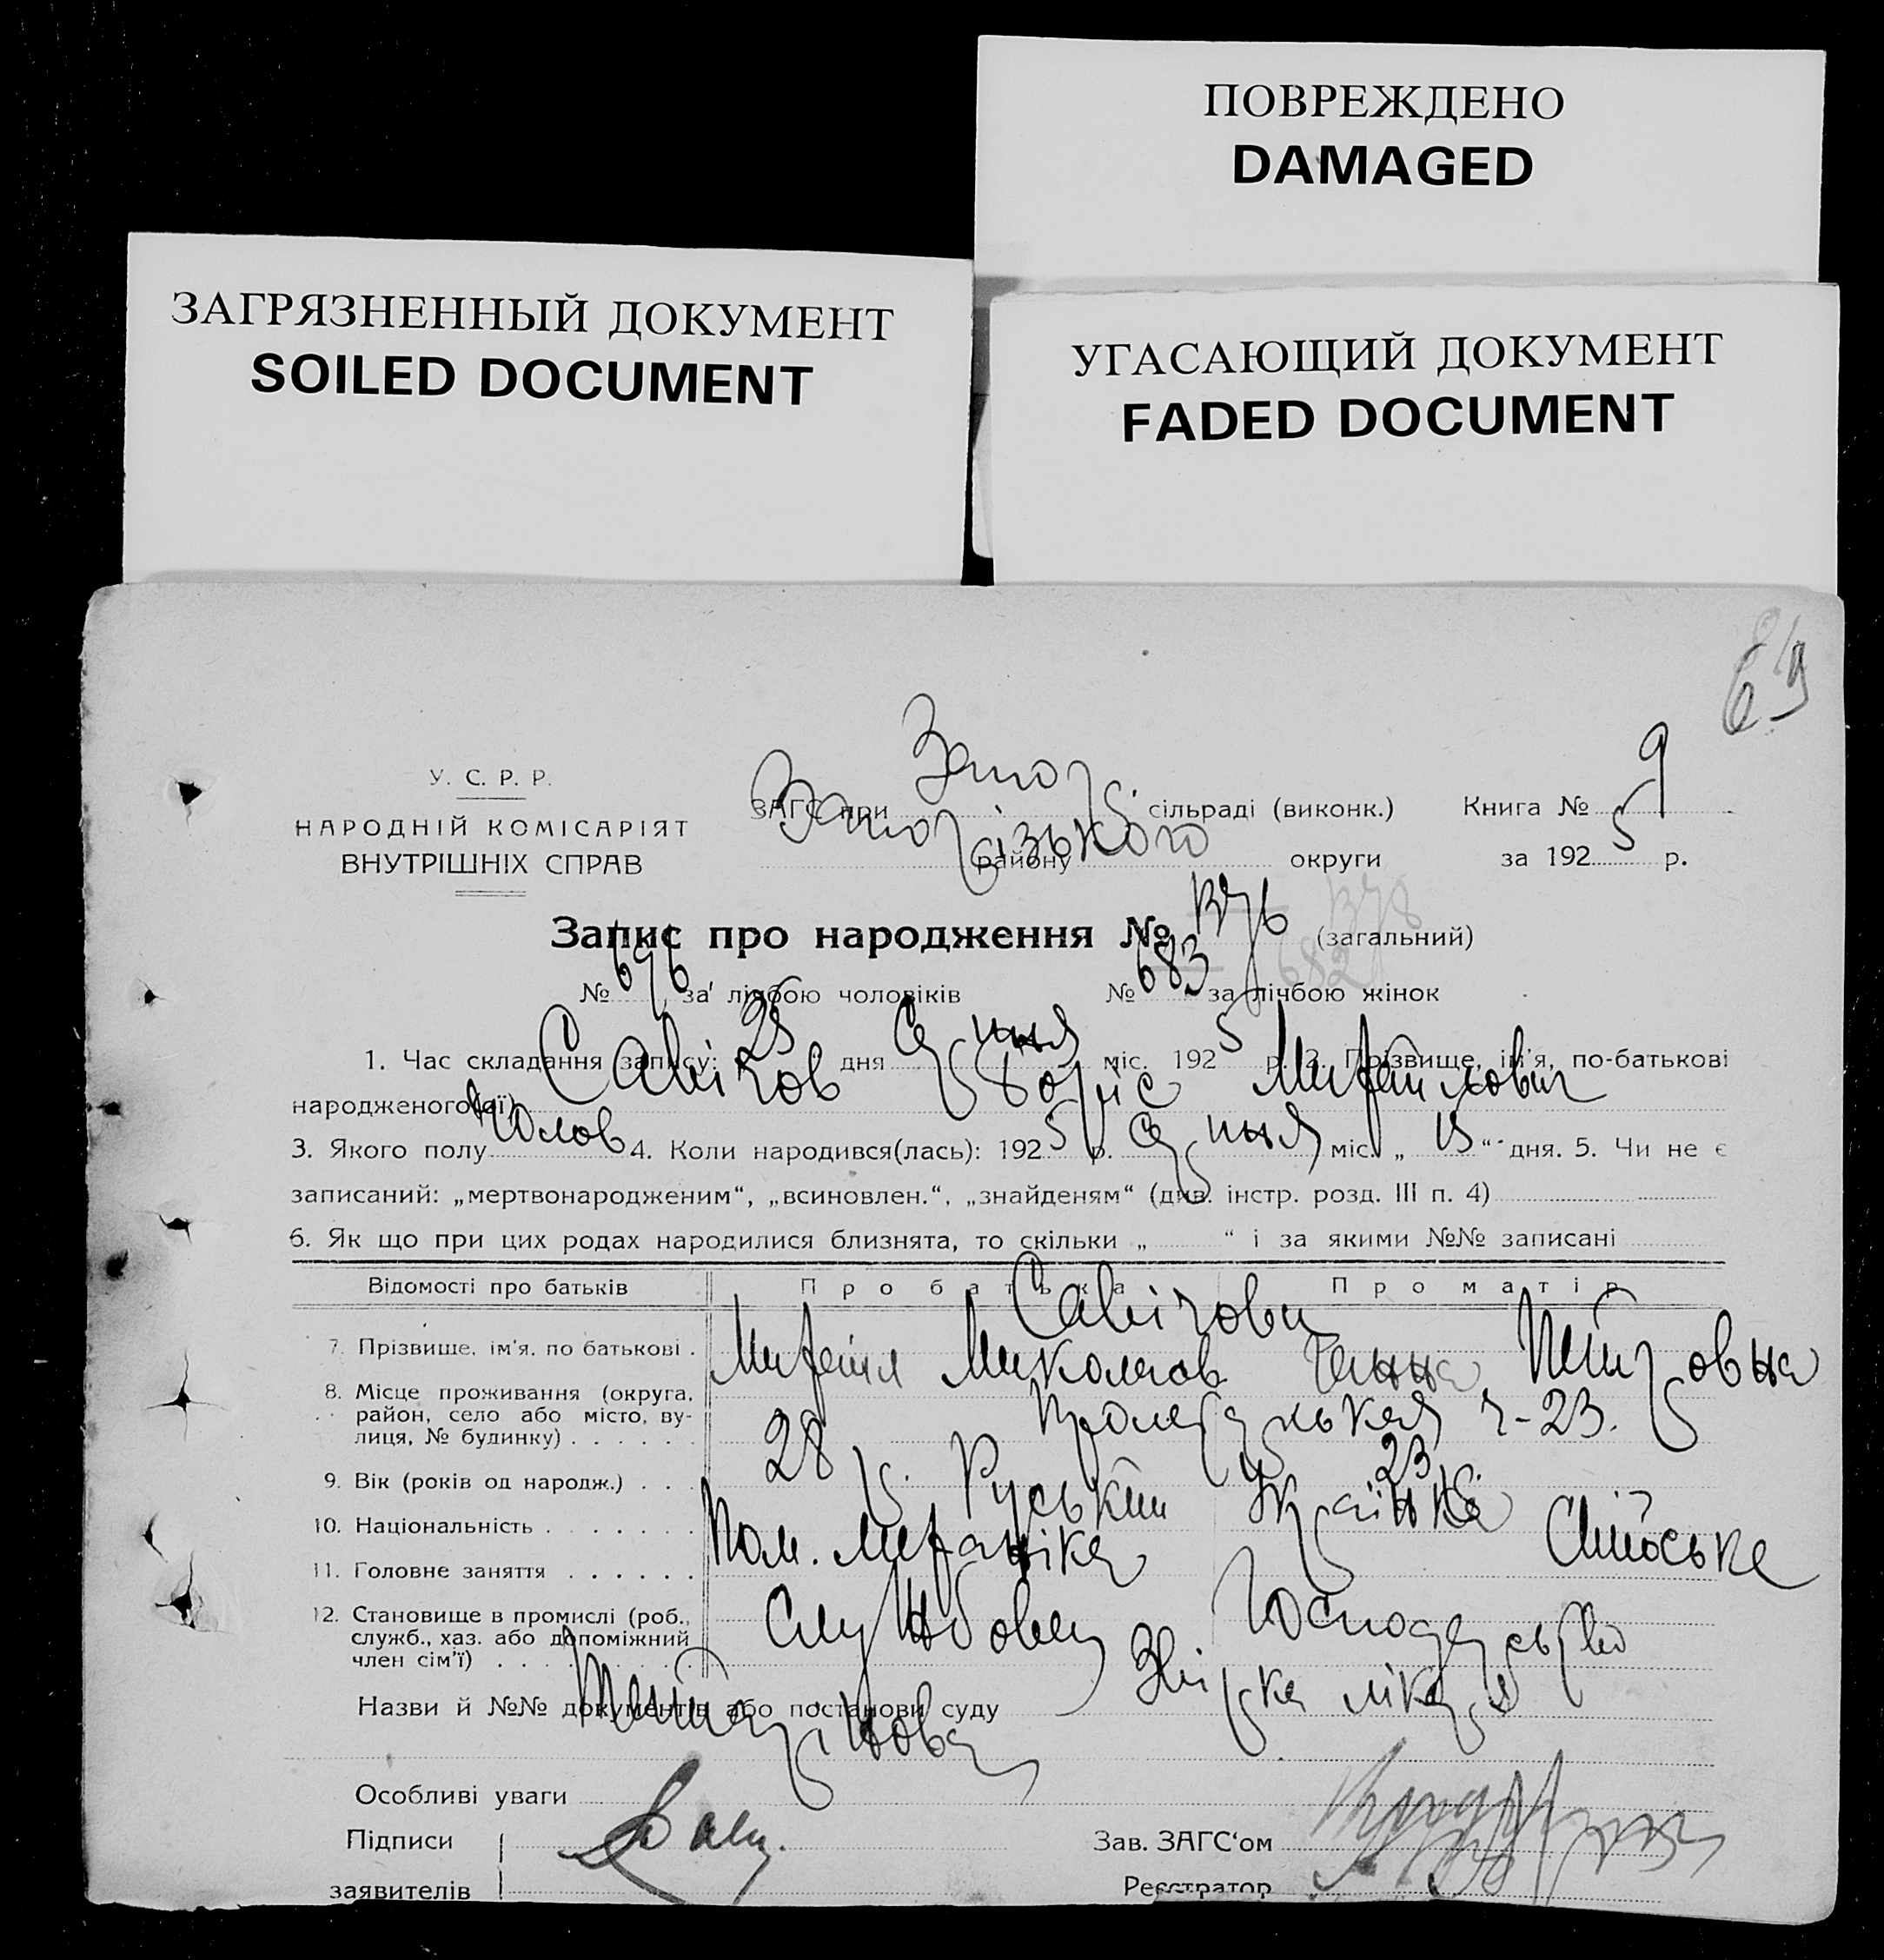 ПОВРЕЖДЕНО
DAMAGED
ЗАГРЯЗНЕННЫЙ ДОКУМЕНТ
SOILED DOCUMENT
УГАСАЮЩИЙ ДОКУМЕНТ
FADED DOCUMENT
69
У. С. Р. Р.
НАРОДНІЙ КОМІСАРІЯТ
ВНУТРІШНІХ СПРАВ
ЗАГС при Запор. сільраді (виконк.) Книга № 9
Запорізького району округи за 1925 р.
Запис про народження № 1376 (загальний)
№ 696 за лічбою чоловіків № 683 за лічбою жінок
1. Час складання запису: 25 дня Грудня міс. 1925 р. 2. Прізвище, ім'я, по-батькові
народженого(ої) Борис Михайлович
3. Якого полу Чолов 4. Коли народився(лась): 1925 р. Грудня міс. „ 15 “ дня. 5. Чи не є
записаний: „мертвонародженим“, „всиновлен.“, „знайденям“ (див. інстр. розд. III п. 4)
6. Як що при цих родах народилися близнята, то скільки „ “ і за якими №№ записані
Відомості про батьків Про батька Про матір
7. Прізвище, ім'я, по батькові . Михайл Миколаєв Ганна Петровна
8. Місце проживання (округа,
район, село або місто, ву-
лиця, № будинку) . . . . . . ч-23.
9. Вік (років од народж.) . . . 28 р. 23 р.
10. Національність . . . . . . . Руський Українка
11. Головне заняття . . . . . . Пом. механіка Сільське
12. Становище в промислі (роб.,
служб., хаз. або допоміжний
член сім'ї) . . . . . . . . . . Службовец Господарство
Назви й №№ документів або постанови суду Збірка лікаря
Особливі уваги
Підписи
заявителів
Зав. ЗАГС‘ом
Реєстратор